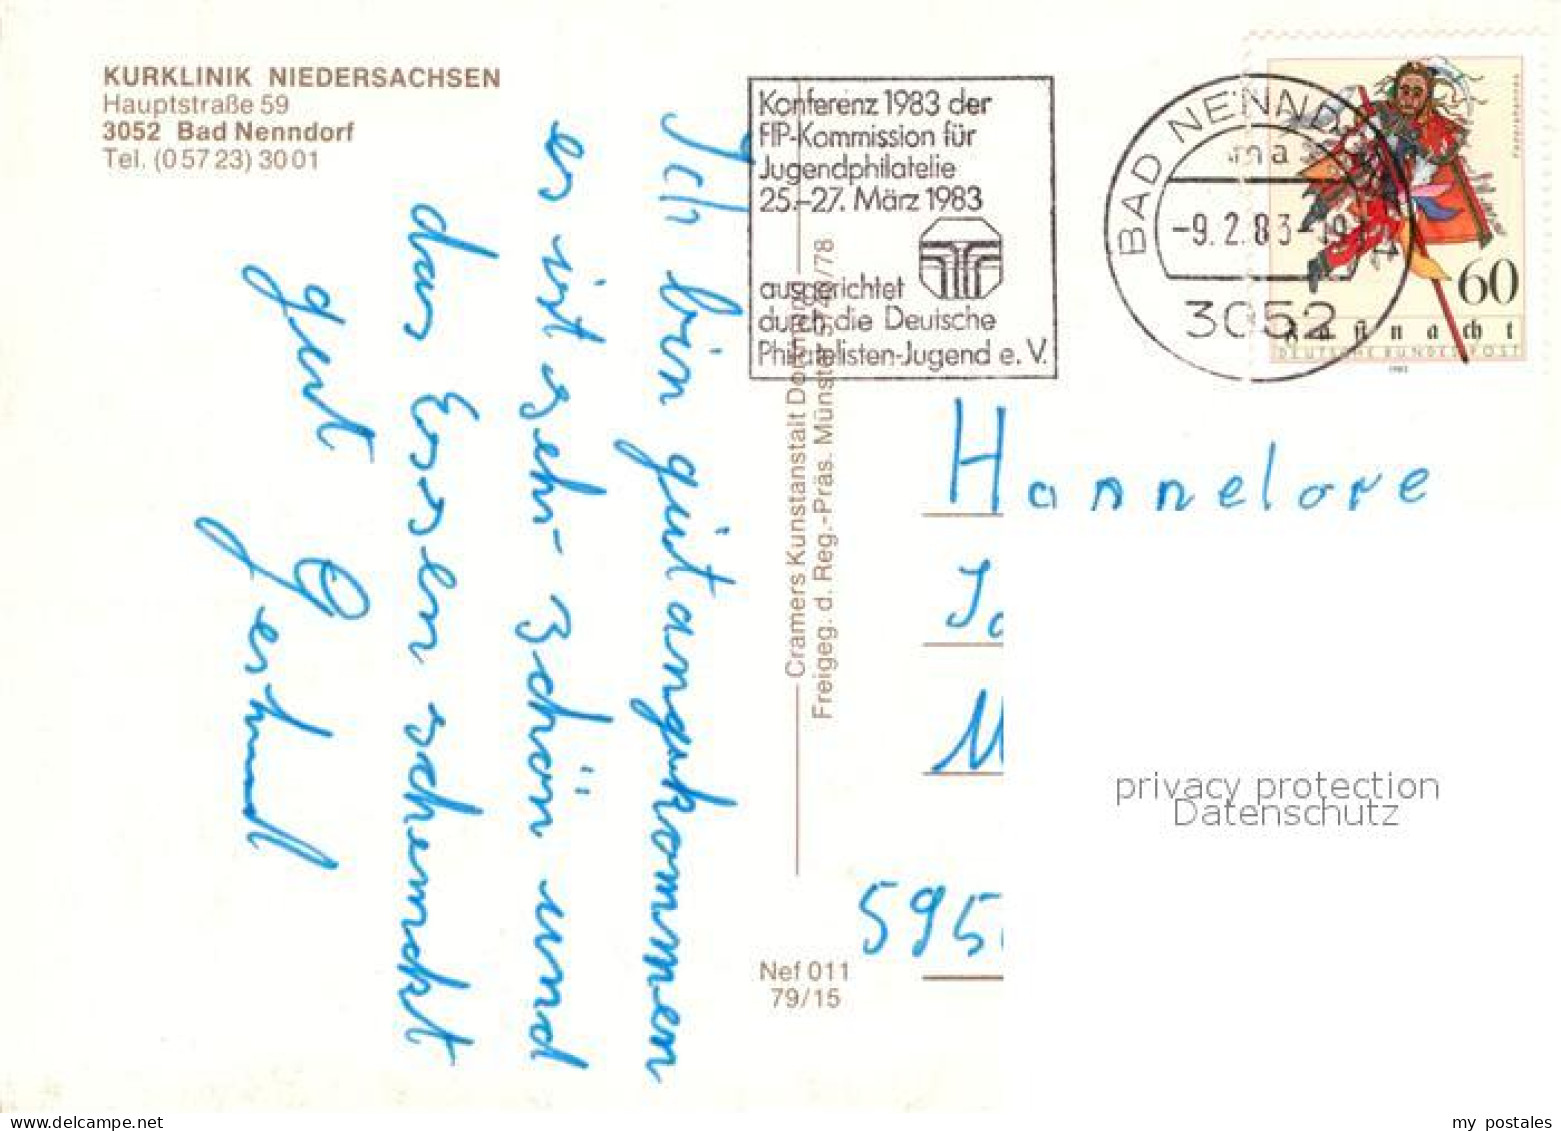 KURKLINIK NIEDERSACHSEN
Hauptstraße 59
3052 Bad Nenndorf
Tel. (0 57 23) 30 01
Ich bin gut angekommen
es ist sehr schön und
das Essen schmekt
gut
Gertrud
Konferenz 1983 der
FIP-Kommission für
Jugendphilatelie
25.-27. März 1983
ausgerichtet
durch die Deutsche
Philatelisten-Jugend e. V.
BAD NENND
-9.2.83-19
3052
60
Fastnacht
DEUTSCHE BUNDESPOST
1983
Cramers Kunstanstalt Dortmund
Freigeg. d. Reg.-Präs. Münster
Hannelore
595
Nef 011
79/15
privacy protection
Datenschutz
my postales